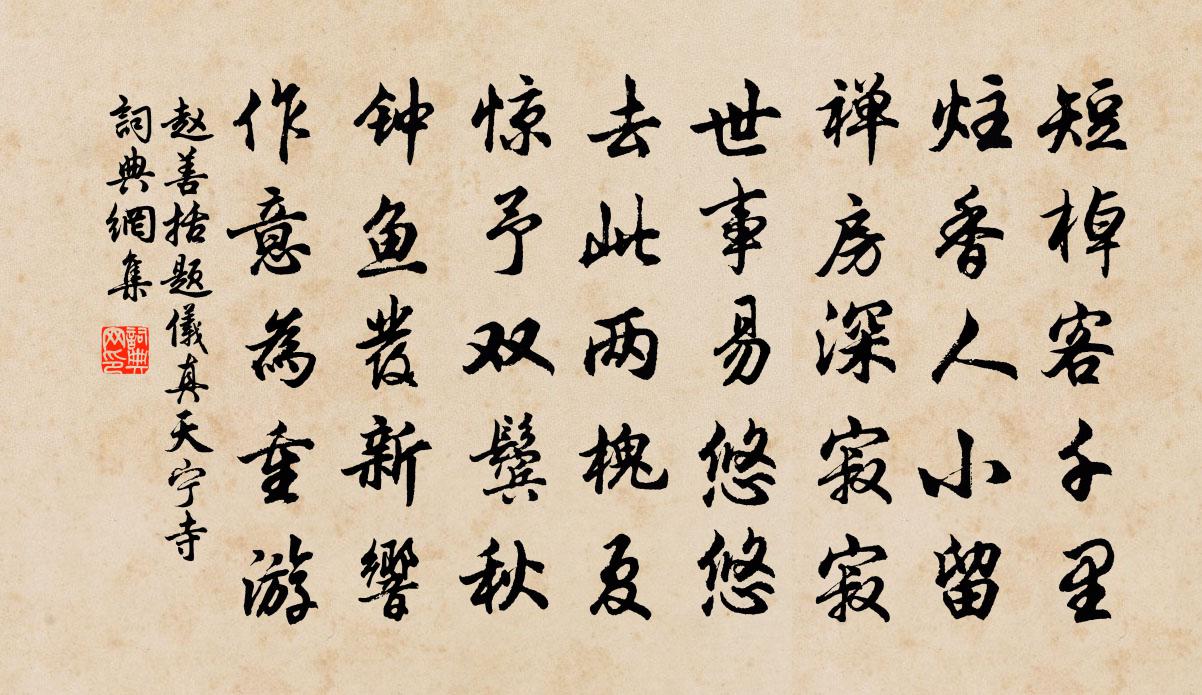 短棹客千里
炷香人小留
禅房深寂寂
世事易悠悠
去此两槐夏
惊予双鬓秋
钟鱼发新響
作意為重游
赵善括题儀真天宁寺
詞典網集
詞典
网印